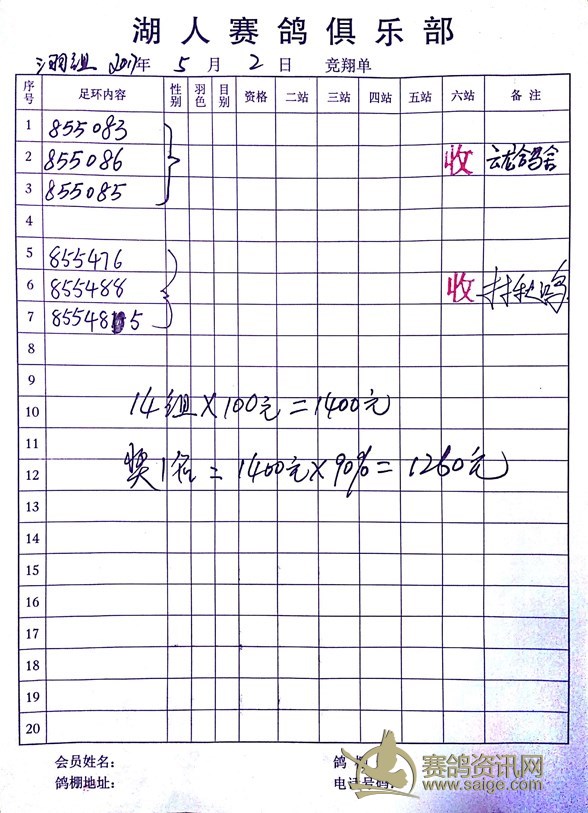 湖人赛鸽俱乐部
3羽组 2017年 5 月 2 日 竞翔单
序号 足环内容 性别 羽色 目别 资格 二站 三站 四站 五站 六站 备注
1 855083
2 855086 收 云龙鸽舍
3 855085
4
5 855476
6 855488 收
7 85548 5
8
9
10 14组×100元=1400元
11
12 奖1名=1400元×90%=1260元
13
14
15
16
17
18
19
20
会员姓名: 鸽
鸽棚地址: 电话号码:
赛鸽资讯网
www.saige.com